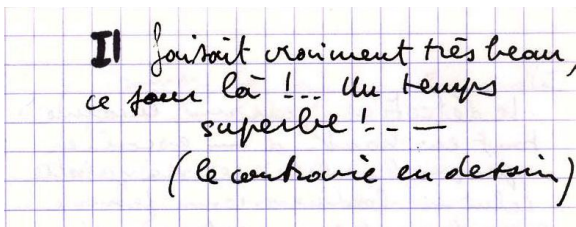 Il faisait vraiment très beau,
ce jour là !... Un temps
superbe !... —
(le contraire en dessin)